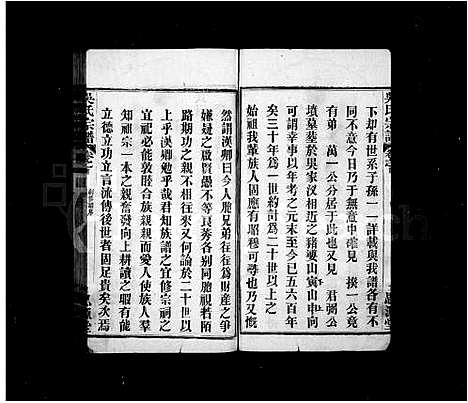 吳氏宗譜
下却有世系子孫一一詳載與我譜各有不
同不意今日乃于無意中確見 揆一公竟
有弟 萬一公同居於此也又見 君弼公
墳墓葬於吳家汊相近之豬婆山寅山申向
可謂幸事以年考之元末至今已五六百年
矣三十年爲一世約計爲二十世以上之
始祖我輩族人固應有昭穆可尋也乃又慨
然謂漢卿曰今人胞兄弟往往爲財產之爭
嫌疑之啟賢愚不等良莠各別同胞視若陌
路期功之親不相往來又何論於二十世以
上乎漢卿勉乎哉君知族譜之宜修宗祠之
宜祀必能敦睦合族親親而愛人使族人羣
知祖宗一本之親奮發向上耕讀之暇有能
立德立功立言流傳後世者固足貴矣次焉
吳氏宗譜